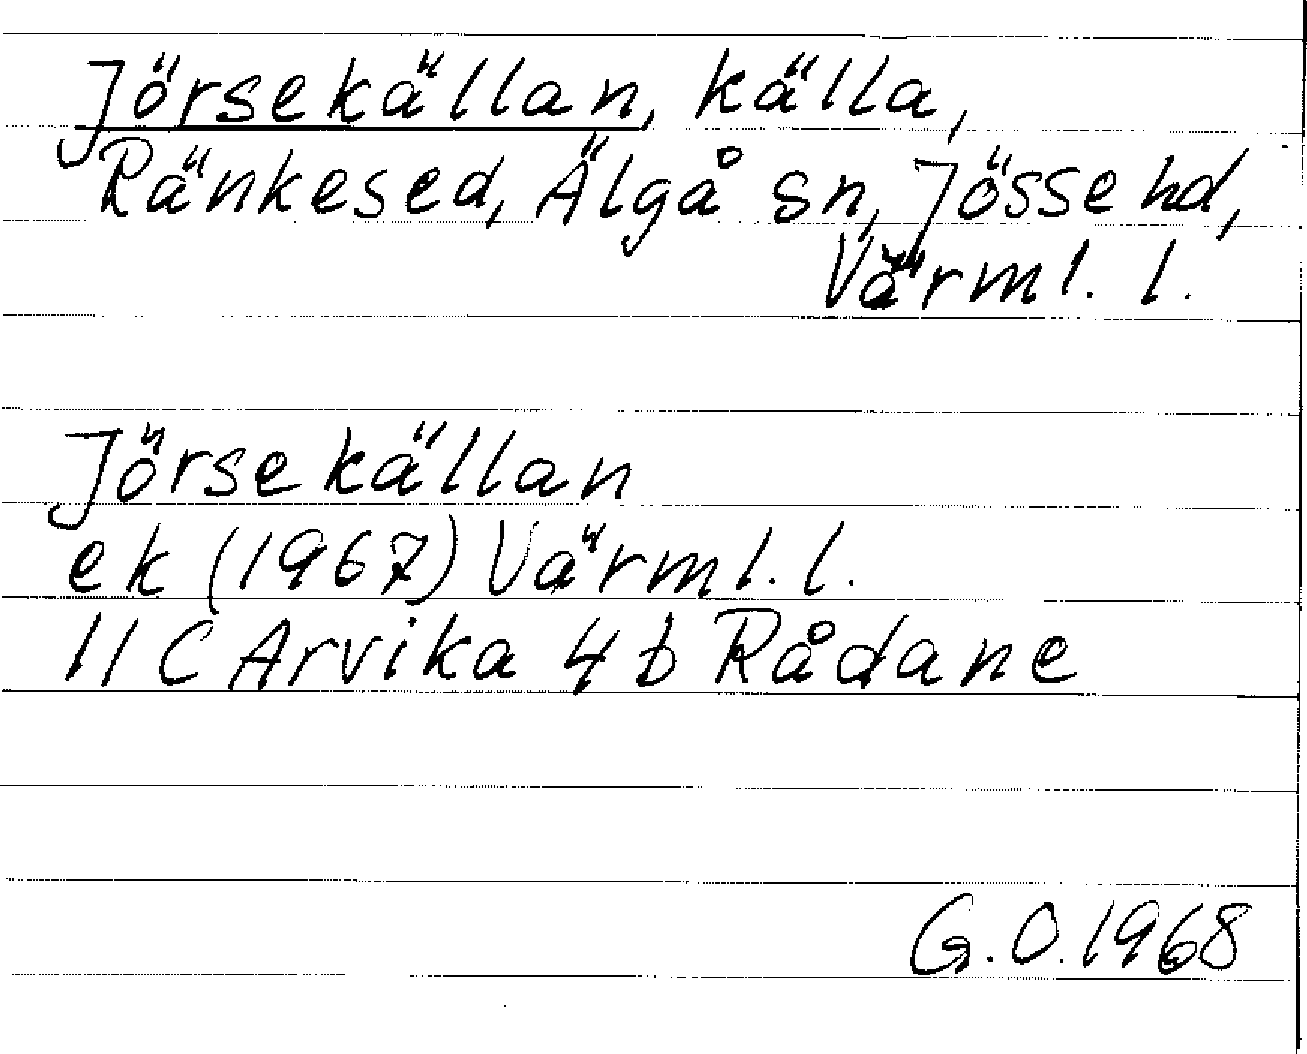 Jörsekällan, källa,
Ränkesed, Älgå sn, Jösse hd,
Värml. l.
Jörsekällan
ek (1967) Värml. l.
11 C Arvika 4 b Rådane
G.O. 1968